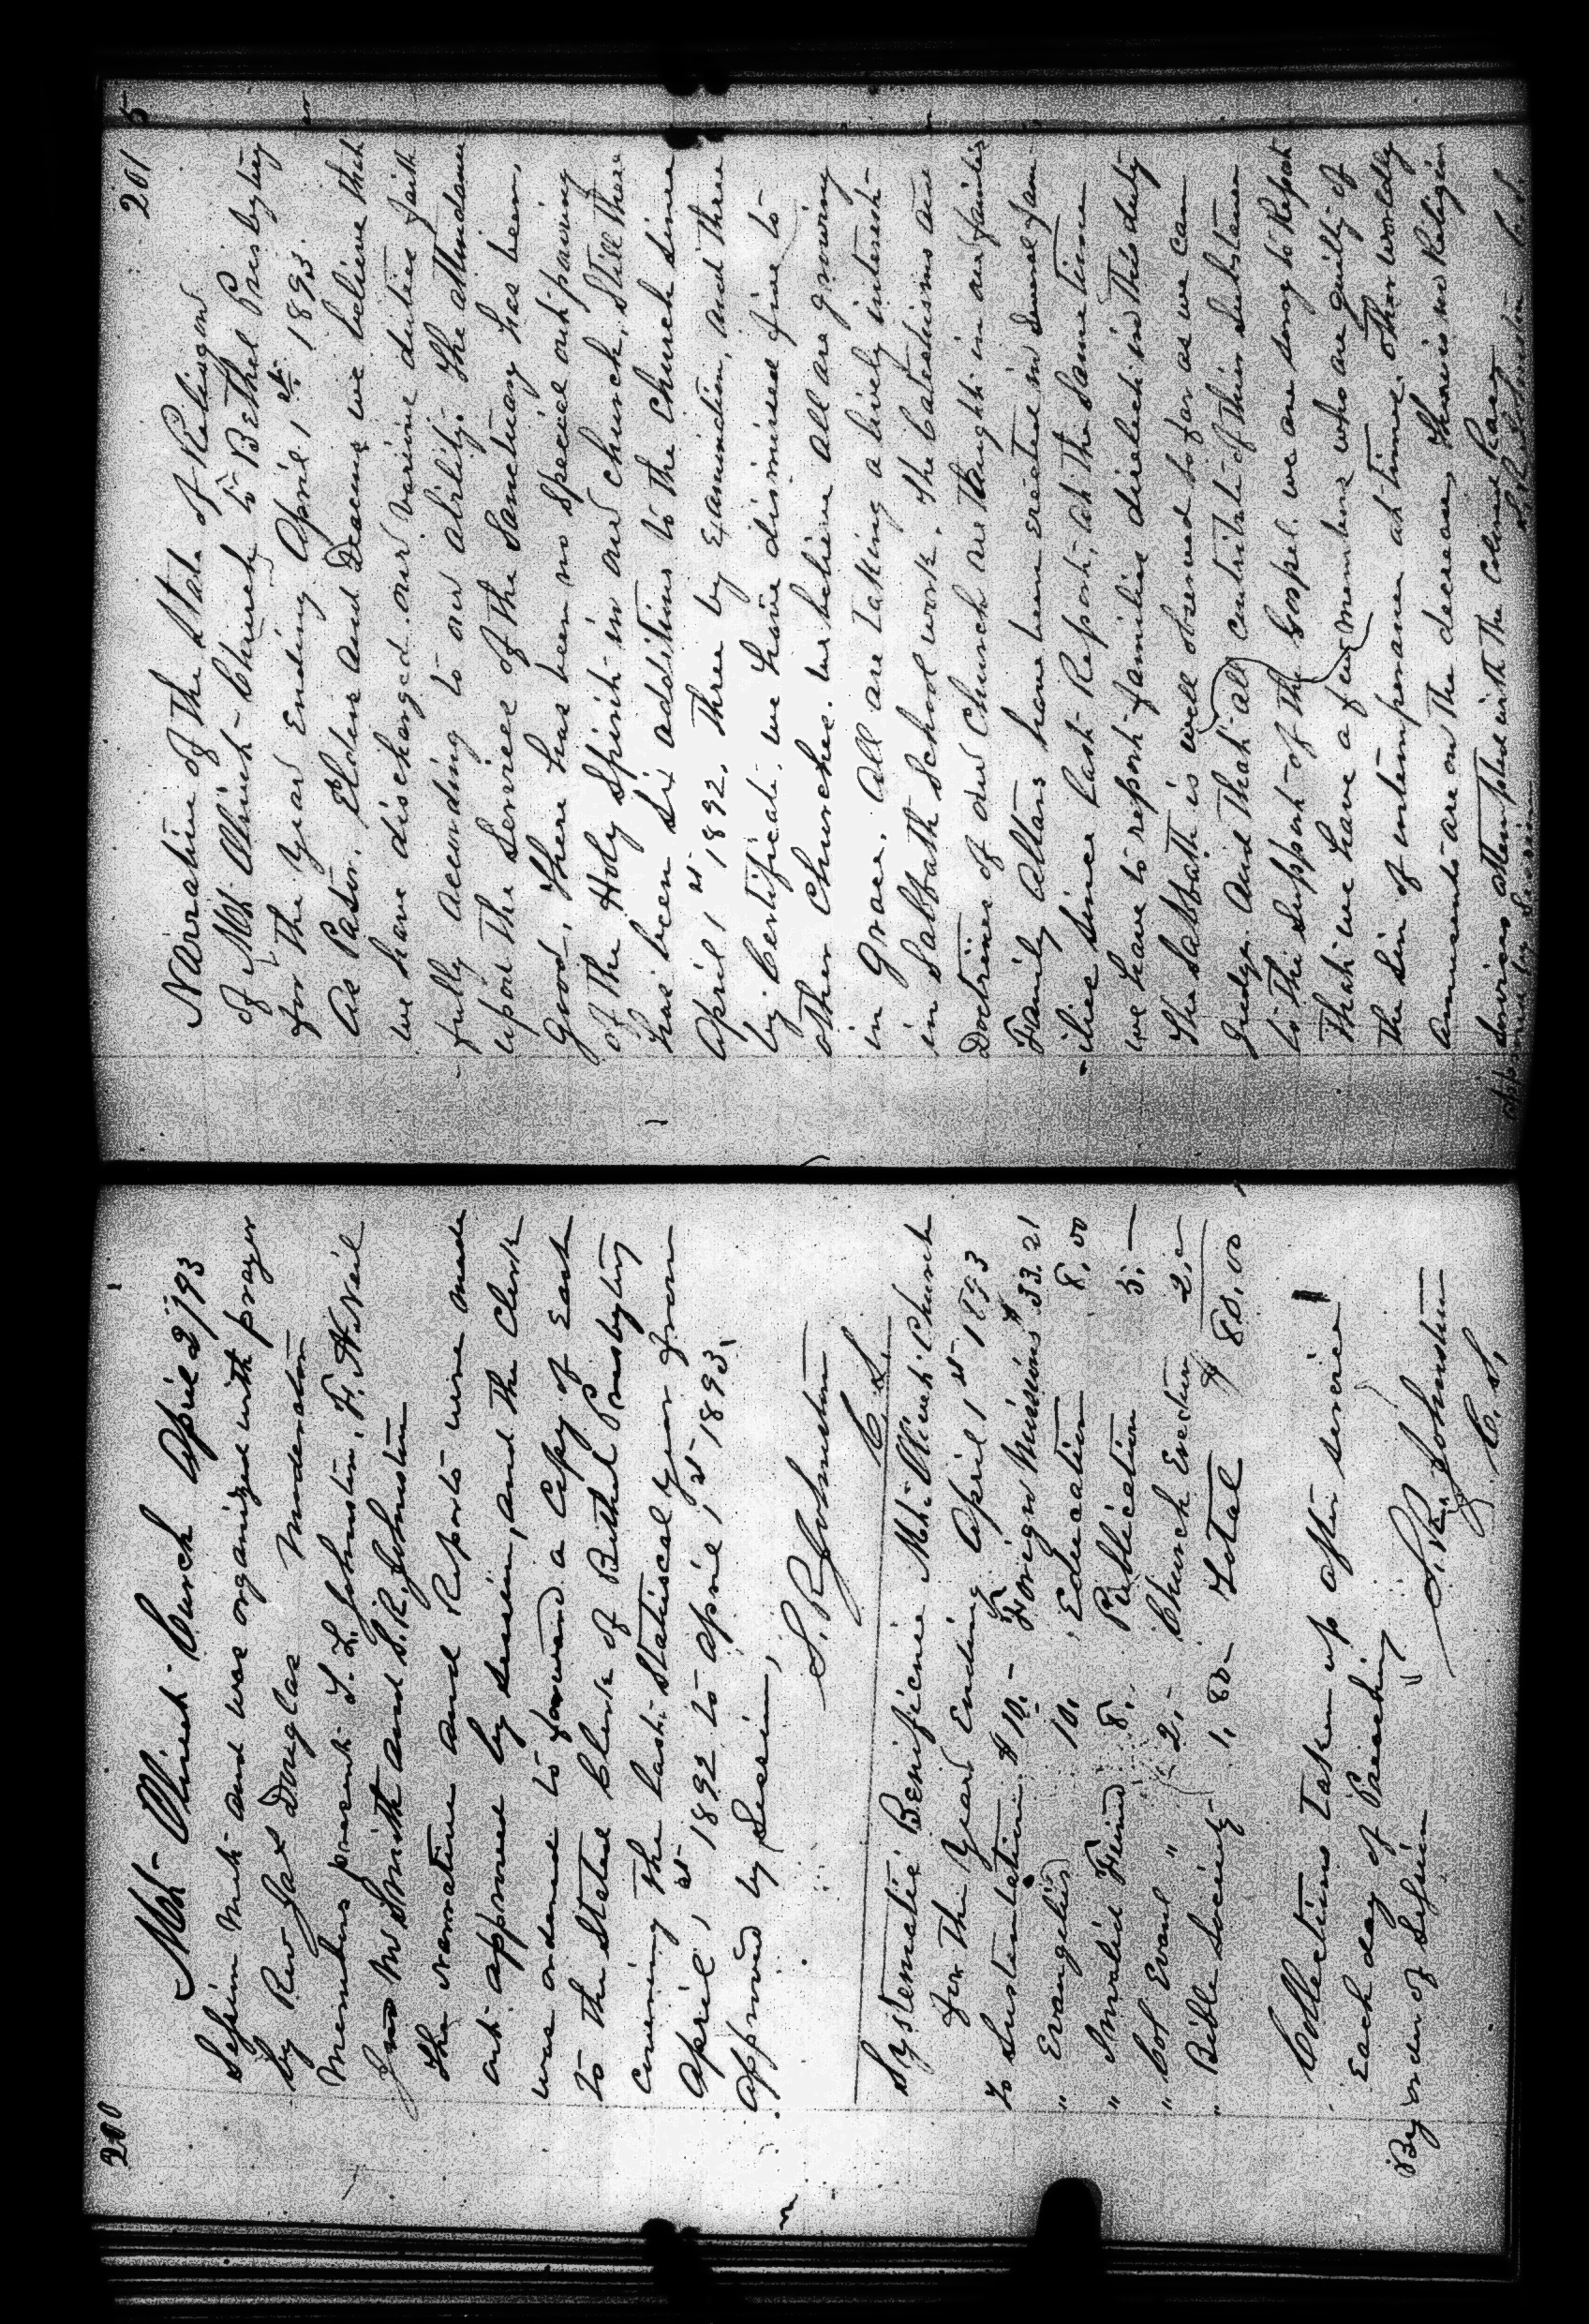 200
Mt- Olivet- Curch April 2/93
Session met and was organized with prayer
by Rev Jas Douglas Moderator
Members present T. L. Johnston, F. A. Neil
Jno M Smith and S. R. Johnston
The Narrative and Reports were made
out approved by Session, and the Clerk
was ordered to forward a Copy of Each
to the Stated Clerk of Bethel Presbytery
covering the last Statiscal year from
April, 1st 1892 to April, 1st 1893,
Approved by Session,
S. R. Johnston
C. S.
Systematic Benificence Mt. Olivet Church
for the Year Ending April 1st 1893
To Sustentation $ 10.- Foreign Missions $ 33.21
" Evangelist 10. Education 8,00
" Invalid Fund 8. Publication 3,-
" Col Evanl " 2.- Church Erection 2,-
" Bible Society 1.80- Total $ 80,00
Collections Taken up after service
Each day of Preaching
By order of Session
S. R. Johnston
C. S.
201
5
Narrative of the State of Religion
of Mt. Olivet- Church to Bethel Presbytery
for the Year Ending April 1st 1893.
As Pastor, Elders and Deacons we believe that
we have discharged our various duties faith
-fully according to our ability. The attendance
upon the Services of the Sanctuary has been,
Good, There has been no special outpouring
of the Holy Spirit in our church, Still there
has been Six additions to the Church since
April 1st 1892. Three by Examination, and three
by Certificate. we have dismissed five to
other Churches. we believe all are growing
in grace. All are taking a lively interest-
in Sabbath School work. The Catechisms and
Doctrines of our Church are taught in our families
Family Altars have been erected in several fam-
-ilies since last Report, at the Same time
we have to report families derelect in this duty
The Sabbath is well observed so far as we can
Judge. And that all contribute of their substance
to the Support of the Gospel. we are sorry to Report
that we have a few members who are guilty of
the sin of intemperance at times. other worldly
amusements are on the decrease, There is no Religion
services attempted with the Colored Race
Approved by Session S. R. Johnston C. S.